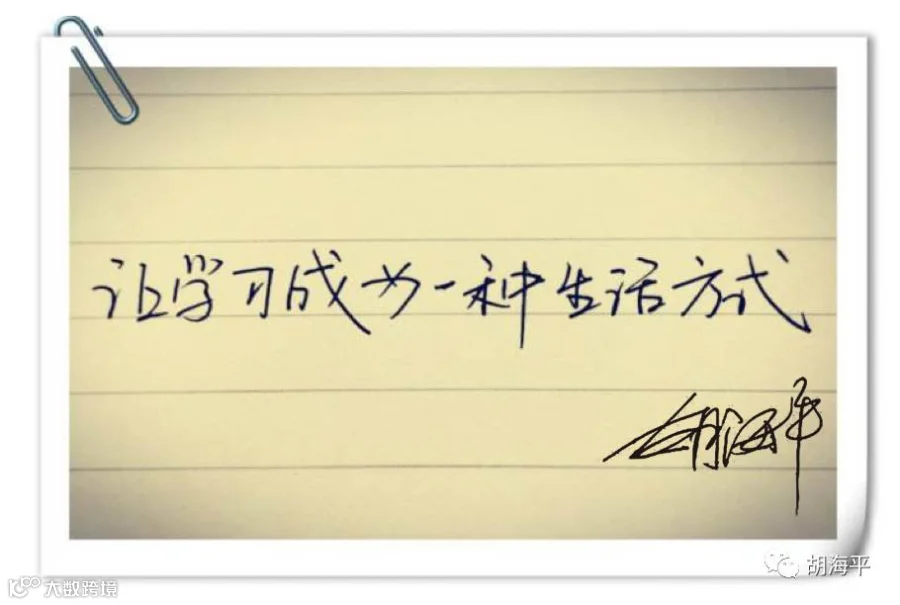 让学习成为一种生活方式
胡海平
胡海平
大数跨境